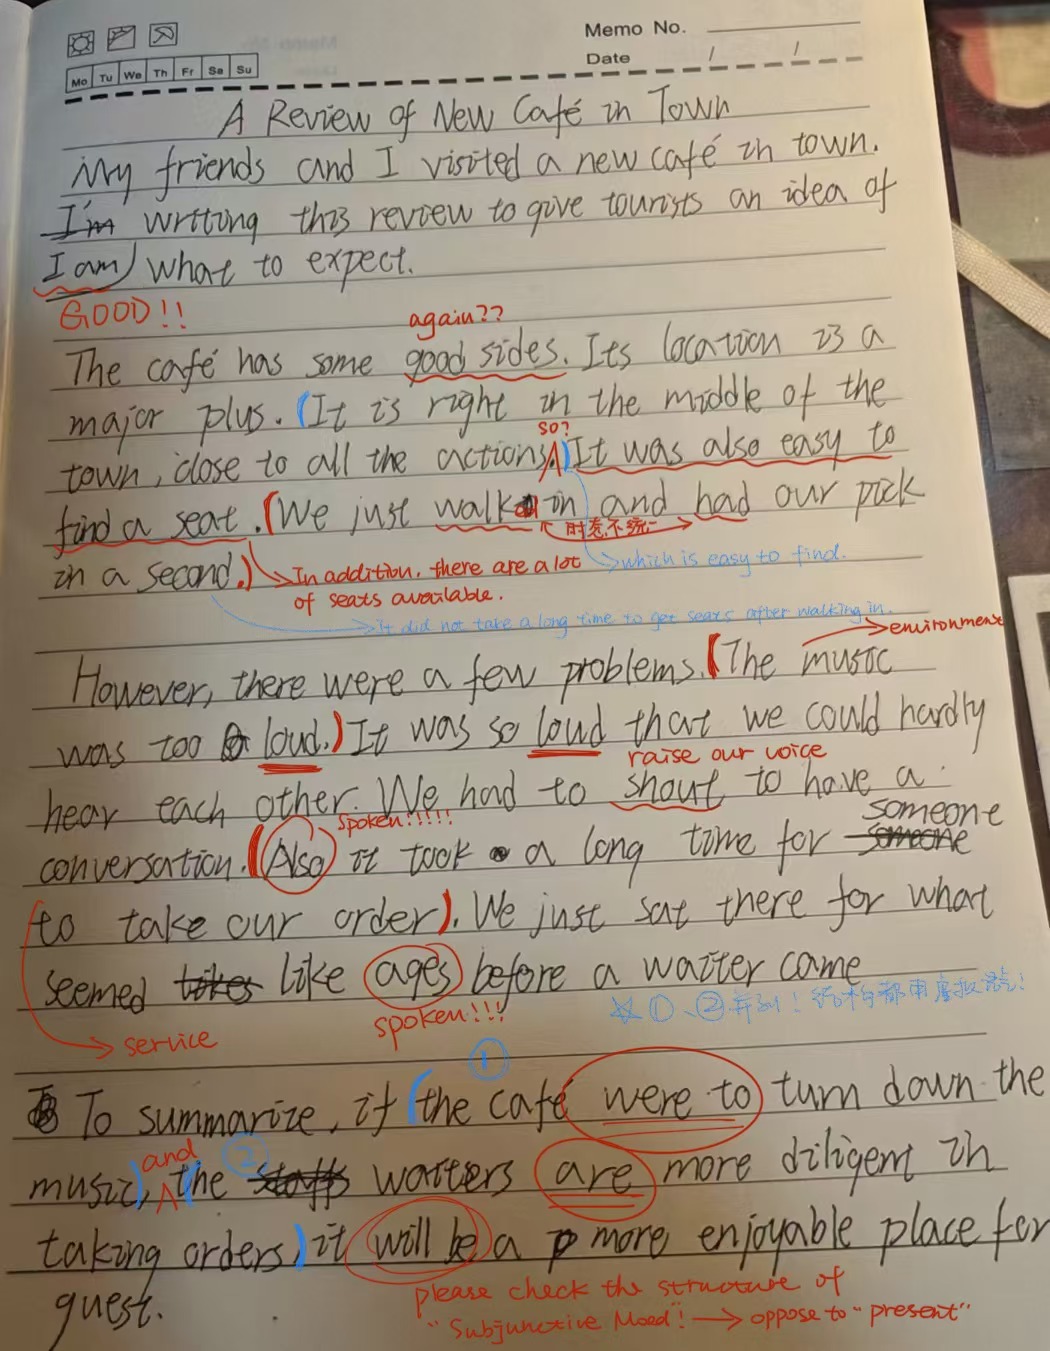 Memo No.
Mo Tu We Th Fr Sa Su
Date / /
A Review of New Café in Town
My friends and I visited a new café in town.
I'm writing this review to give tourists an idea of
I am) what to expect.
GOOD!!
again??
The café has some good sides. Its location is a
major plus. (It is right in the middle of the
so?
town, close to all the actions.) It was also easy to
find a seat. (We just walk in and had our pick
时态不统一
in a second.)
In addition, there are a lot
of seats available.
which is easy to find.
it did not take a long time to get seats after walking in.
environment
However, there were a few problems. (The music
was too loud.) It was so loud that we could hardly
raise our voice
hear each other. We had to shout to have a
spoken!!!!!
someone
conversation. (Also it took a long time for someone
to take our order). We just sat there for what
seemed takes like ages before a waiter came
service
spoken!!!
①、②并列!结构都用虚拟语气!
①
To summarize, if (the café were to turn down the
and
②
music), (the staffs waiters are more diligent in
taking orders) it will be a more enjoyable place for
guest.
please check the structure of
"Subjunctive Mood! → oppose to "present"